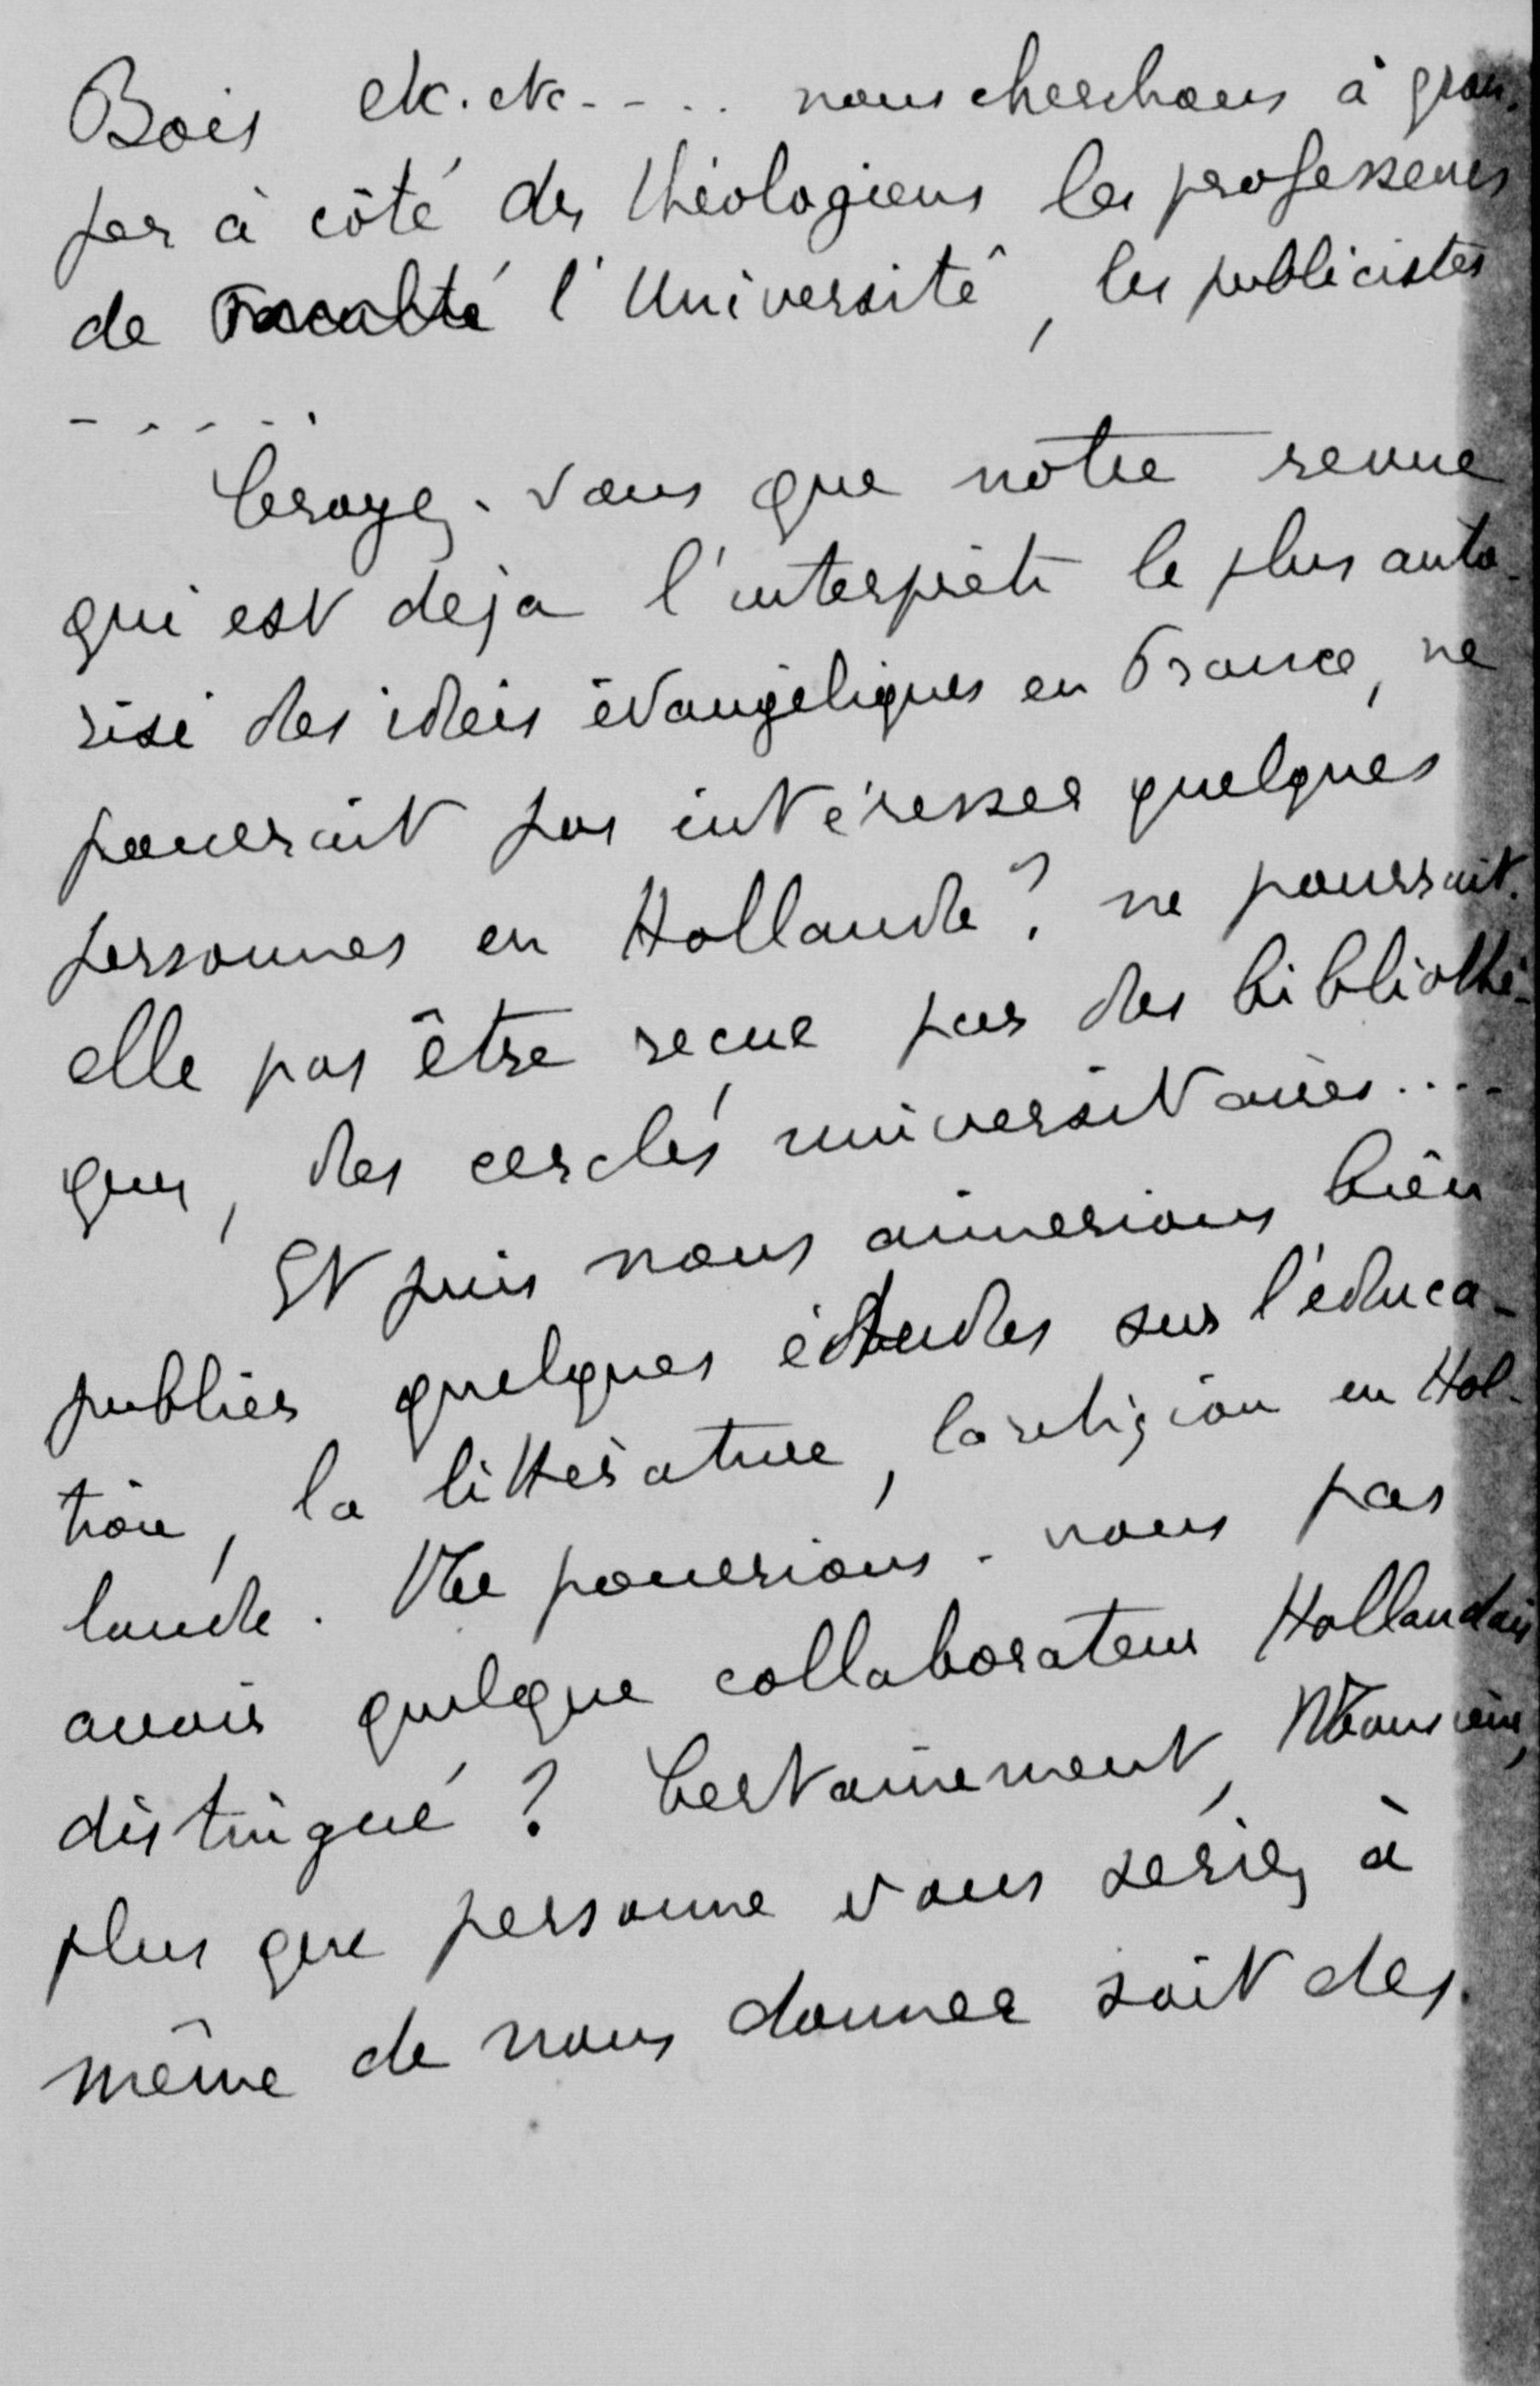 Bois etc. etc - - . . nous cherchons à grou-
per à côté des théologiens les professeurs
de Faculté l'Université, les publicistes
- - - - .
Croyez-vous que nôtre revue
qui est déja l'interprète le plus auto-
risé des idées évangéliques en France, ne
pourrait pas intéresser quelques
personnes en Hollande? ne pourrait-
elle pas être reçue par des bibliothè-
ques, des cercles universitaires....
Et puis nous aimerions bien
publier quelques études sur l'éduca-
tion, la littérature, la religion en Hol-
lande. Ne pourrions-nous pas
avoir quelque collaborateur Hollandais
distingué? Certainement, Monsieur,
plus que personne vous seriez à
même de nous donner soit des